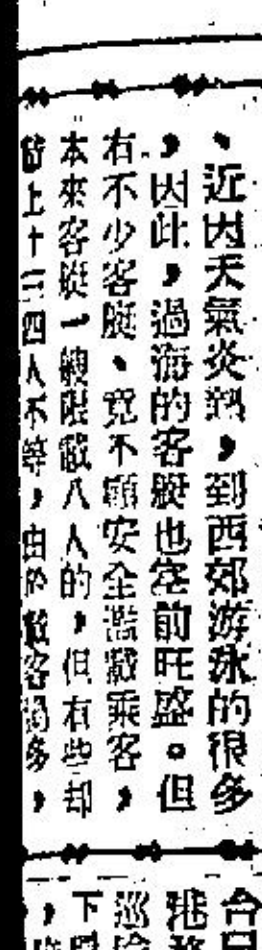 、近因天氣炎熱，到西郊游泳的很多
，因此，過海的客艇也空前旺盛。但
有不少客艇、竟不顧安全濫載乘客，
本來客艇一艘限載八人的，但有些却
載上十三四人不等，由於載客過多，
台
港
巡
，下